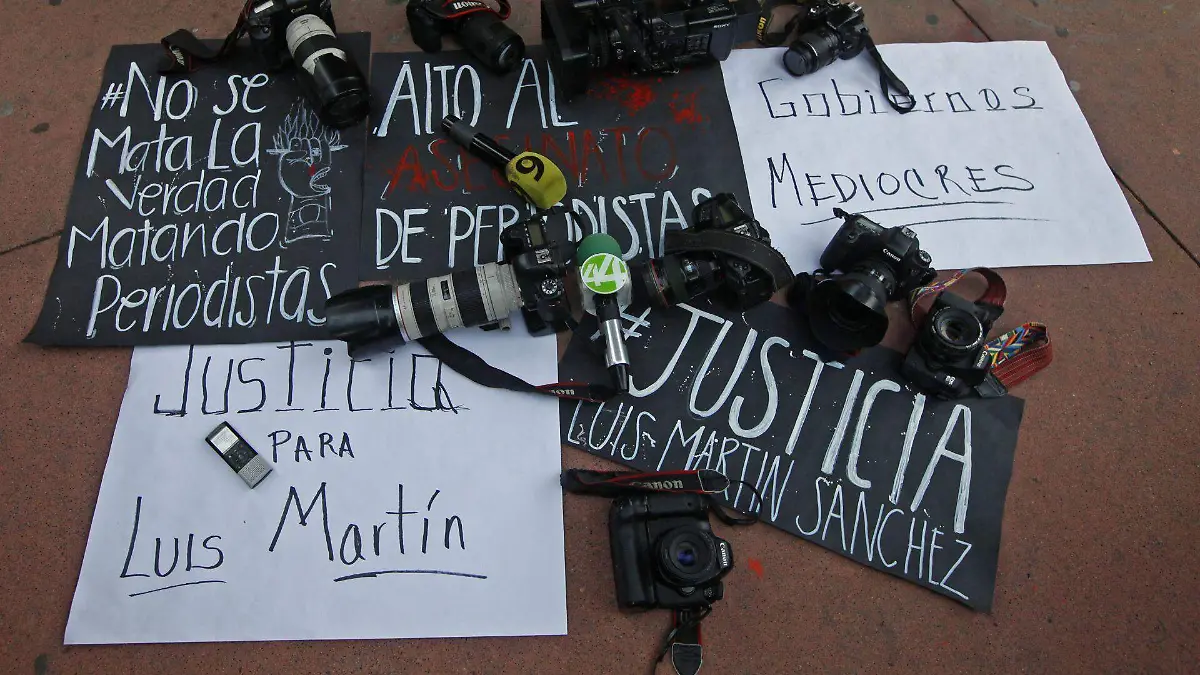 #No se
Mata La
Verdad
Matando
Periodistas
ALTO AL
ASESINATO
DE PERIODISTAS
Gobiernos
MEDIOCRES
JUSTICIA
PARA
Luis Martín
#JUSTICIA
LUIS MARTIN SÁNCHEZ
9
44
Canon
Canon
Canon
SONY